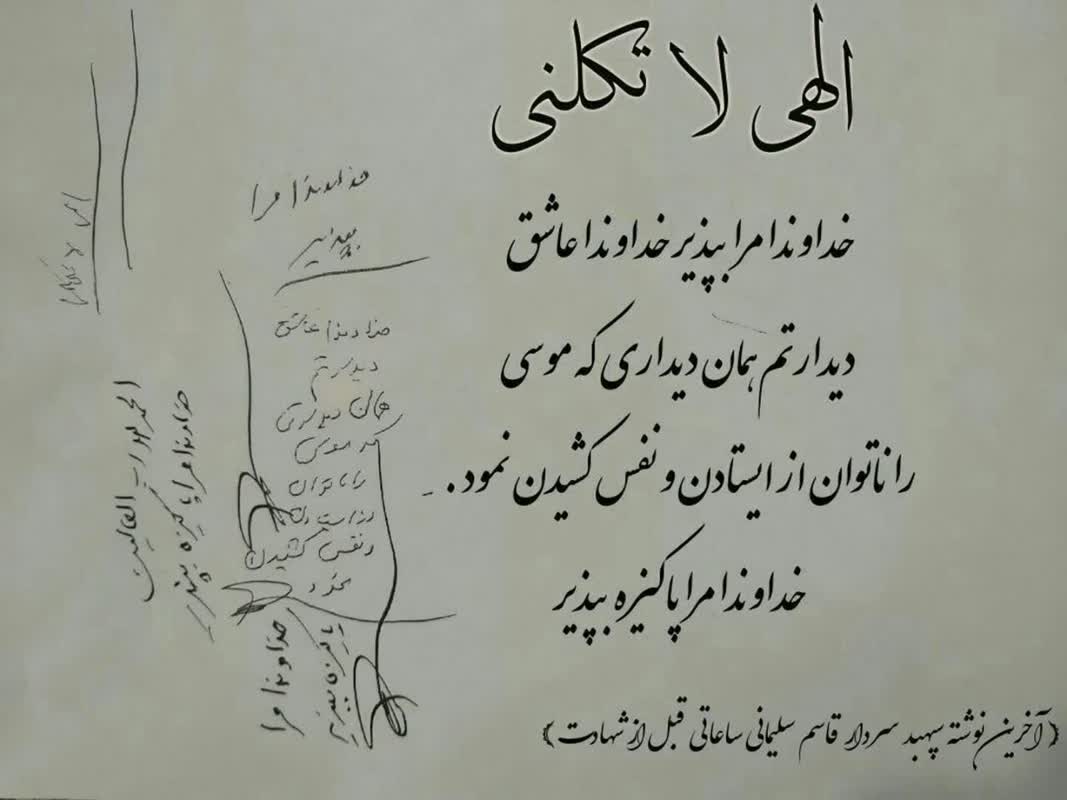 الهی لا تکلنی
خداوندا مرا بپذیر خداوندا عاشق
دیدارتم همان دیداری که موسی
را ناتوان از ایستادن و نفس کشیدن نمود.
خداوندا مرا پاکیزه بپذیر
﴿آخرین نوشته سپهبد سردار قاسم سلیمانی ساعاتی قبل از شهادت﴾
خداوندا مرا
بپذیر
خداوندا عاشق
دیدارتم
همان دیداری
که موسی
را ناتوان
از ایستادن
و نفس کشیدن
نمود
خداوندا مرا
پاکیزه بپذیر
الحمدلله رب العالمین
خداوندا مرا پاکیزه بپذیر
الهی لا تکلنی